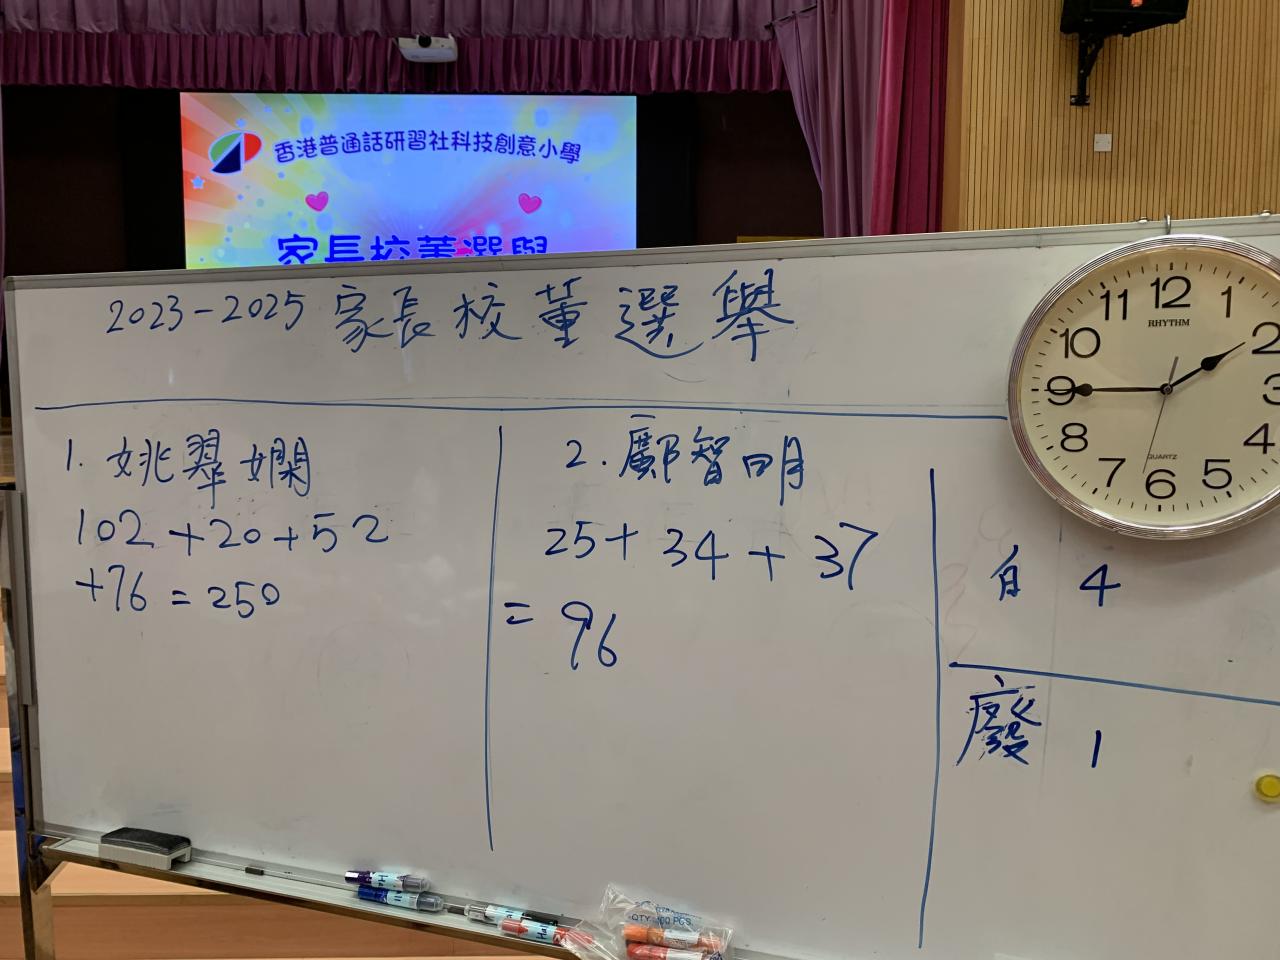 香港普通話研習社科技創意小學
家長校董選舉
2023-2025 家長校董選舉
1. 姚翠嫻
102+20+52
+76 = 250
2. 鄺智明
25+34+37
= 96
白 4
廢 1
12
1
2
3
4
5
6
7
8
9
10
11
RHYTHM
QUARTZ
QTY:100 PCS